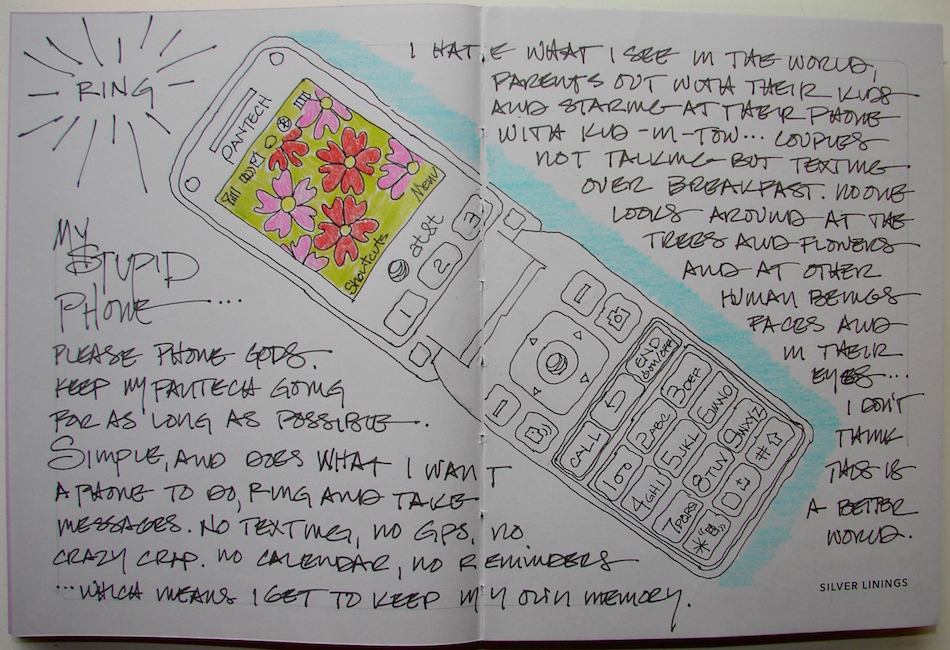 RING
MY
STUPID
PHONE...
PLEASE PHONE GODS.
KEEP MY PANTECH GOING
FOR AS LONG AS POSSIBLE.
SIMPLE, AND DOES WHAT I WANT
A PHONE TO DO, RING AND TAKE
MESSAGES. NO TEXTING, NO GPS, NO
CRAZY CRAP. NO CALENDAR, NO REMINDERS
...WHICH MEANS I GET TO KEEP MY OWN MEMORY.
PANTECH
Menu
Shortcuts
at&t
1 2 3
END
CALL
1
2ABC
3DEF
4GHI
5JKL
6MNO
7PQRS
8TUV
9WXYZ
*
#
I HATE WHAT I SEE IN THE WORLD,
PARENTS OUT WITH THEIR KIDS
AND STARING AT THEIR PHONE
WITH KID-IN-TOW... COUPLES
NOT TALKING BUT TEXTING
OVER BREAKFAST. NO ONE
LOOKS AROUND AT THE
TREES AND FLOWERS
AND AT OTHER
HUMAN BEINGS
FACES AND
IN THEIR
EYES...
I DON'T
THINK
THIS IS
A BETTER
WORLD.
SILVER LININGS